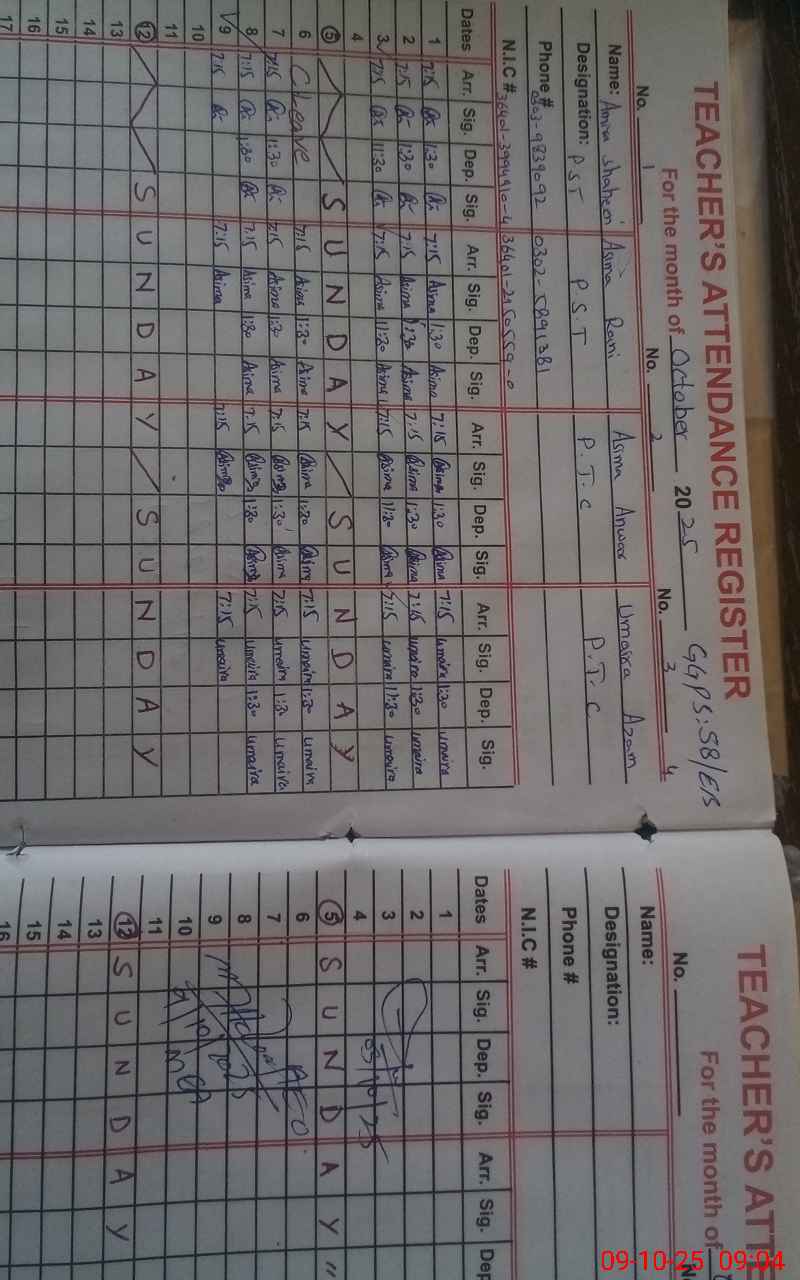 TEACHER'S ATTENDANCE REGISTER
For the month of October 2025 GGPS:58/EB
No. 1 No. 2 No. 3 4
Name: Amina Shaheen Asima Rani Asima Anwar Umaira Azam
Designation: P S T P.S.T P.T.C P.T.C
Phone # 0303-9839092 0302-5891381
N.I.C # 36401-3994910-4 36401-2150559-0
Dates Arr. Sig. Dep. Sig. Arr. Sig. Dep. Sig. Arr. Sig. Dep. Sig. Arr. Sig. Dep. Sig.
1 7:15 1:30 7:15 Asima 1:30 Asima 7:15 Asima 1:30 Asima 7:15 umaira 1:30 umaira
2 7:15 1:30 7:15 Asima 1:30 Asima 7:15 Asima 1:30 Asima 7:15 umaira 1:30 umaira
3 7:15 11:30 7:15 Asima 11:30 Asima 7:15 Asima 11:30 Asima 7:15 umaira 11:30 umaira
4
5 S U N D A Y S U N D A Y
6 C Leave 7:15 Asima 1:30 Asima 7:15 Asima 1:30 Asima 7:15 umaira 1:30 umaira
7 7:15 1:30 7:15 Asima 1:30 Asima 7:15 Asima 1:30 Asima 7:15 umaira 1:30 umaira
8 7:15 1:30 7:15 Asima 1:30 Asima 7:15 Asima 1:30 Asima 7:15 umaira 1:30 umaira
9 7:15 7:15 Asima 7:15 Asima 7:15 umaira
10
11
12 S U N D A Y S U N D A Y
13
14
15
16
17
TEACHER'S ATT
For the month of
No. No
Name:
Designation:
Phone #
N.I.C #
Dates Arr. Sig. Dep. Sig. Arr. Sig. Dep
1
2
3
03/10/25
4
5 S U N D A Y "
6 AEO
7
8
9
10 MEA
11
12 S U N D A Y
13
14
15
16
09-10-25 09:04